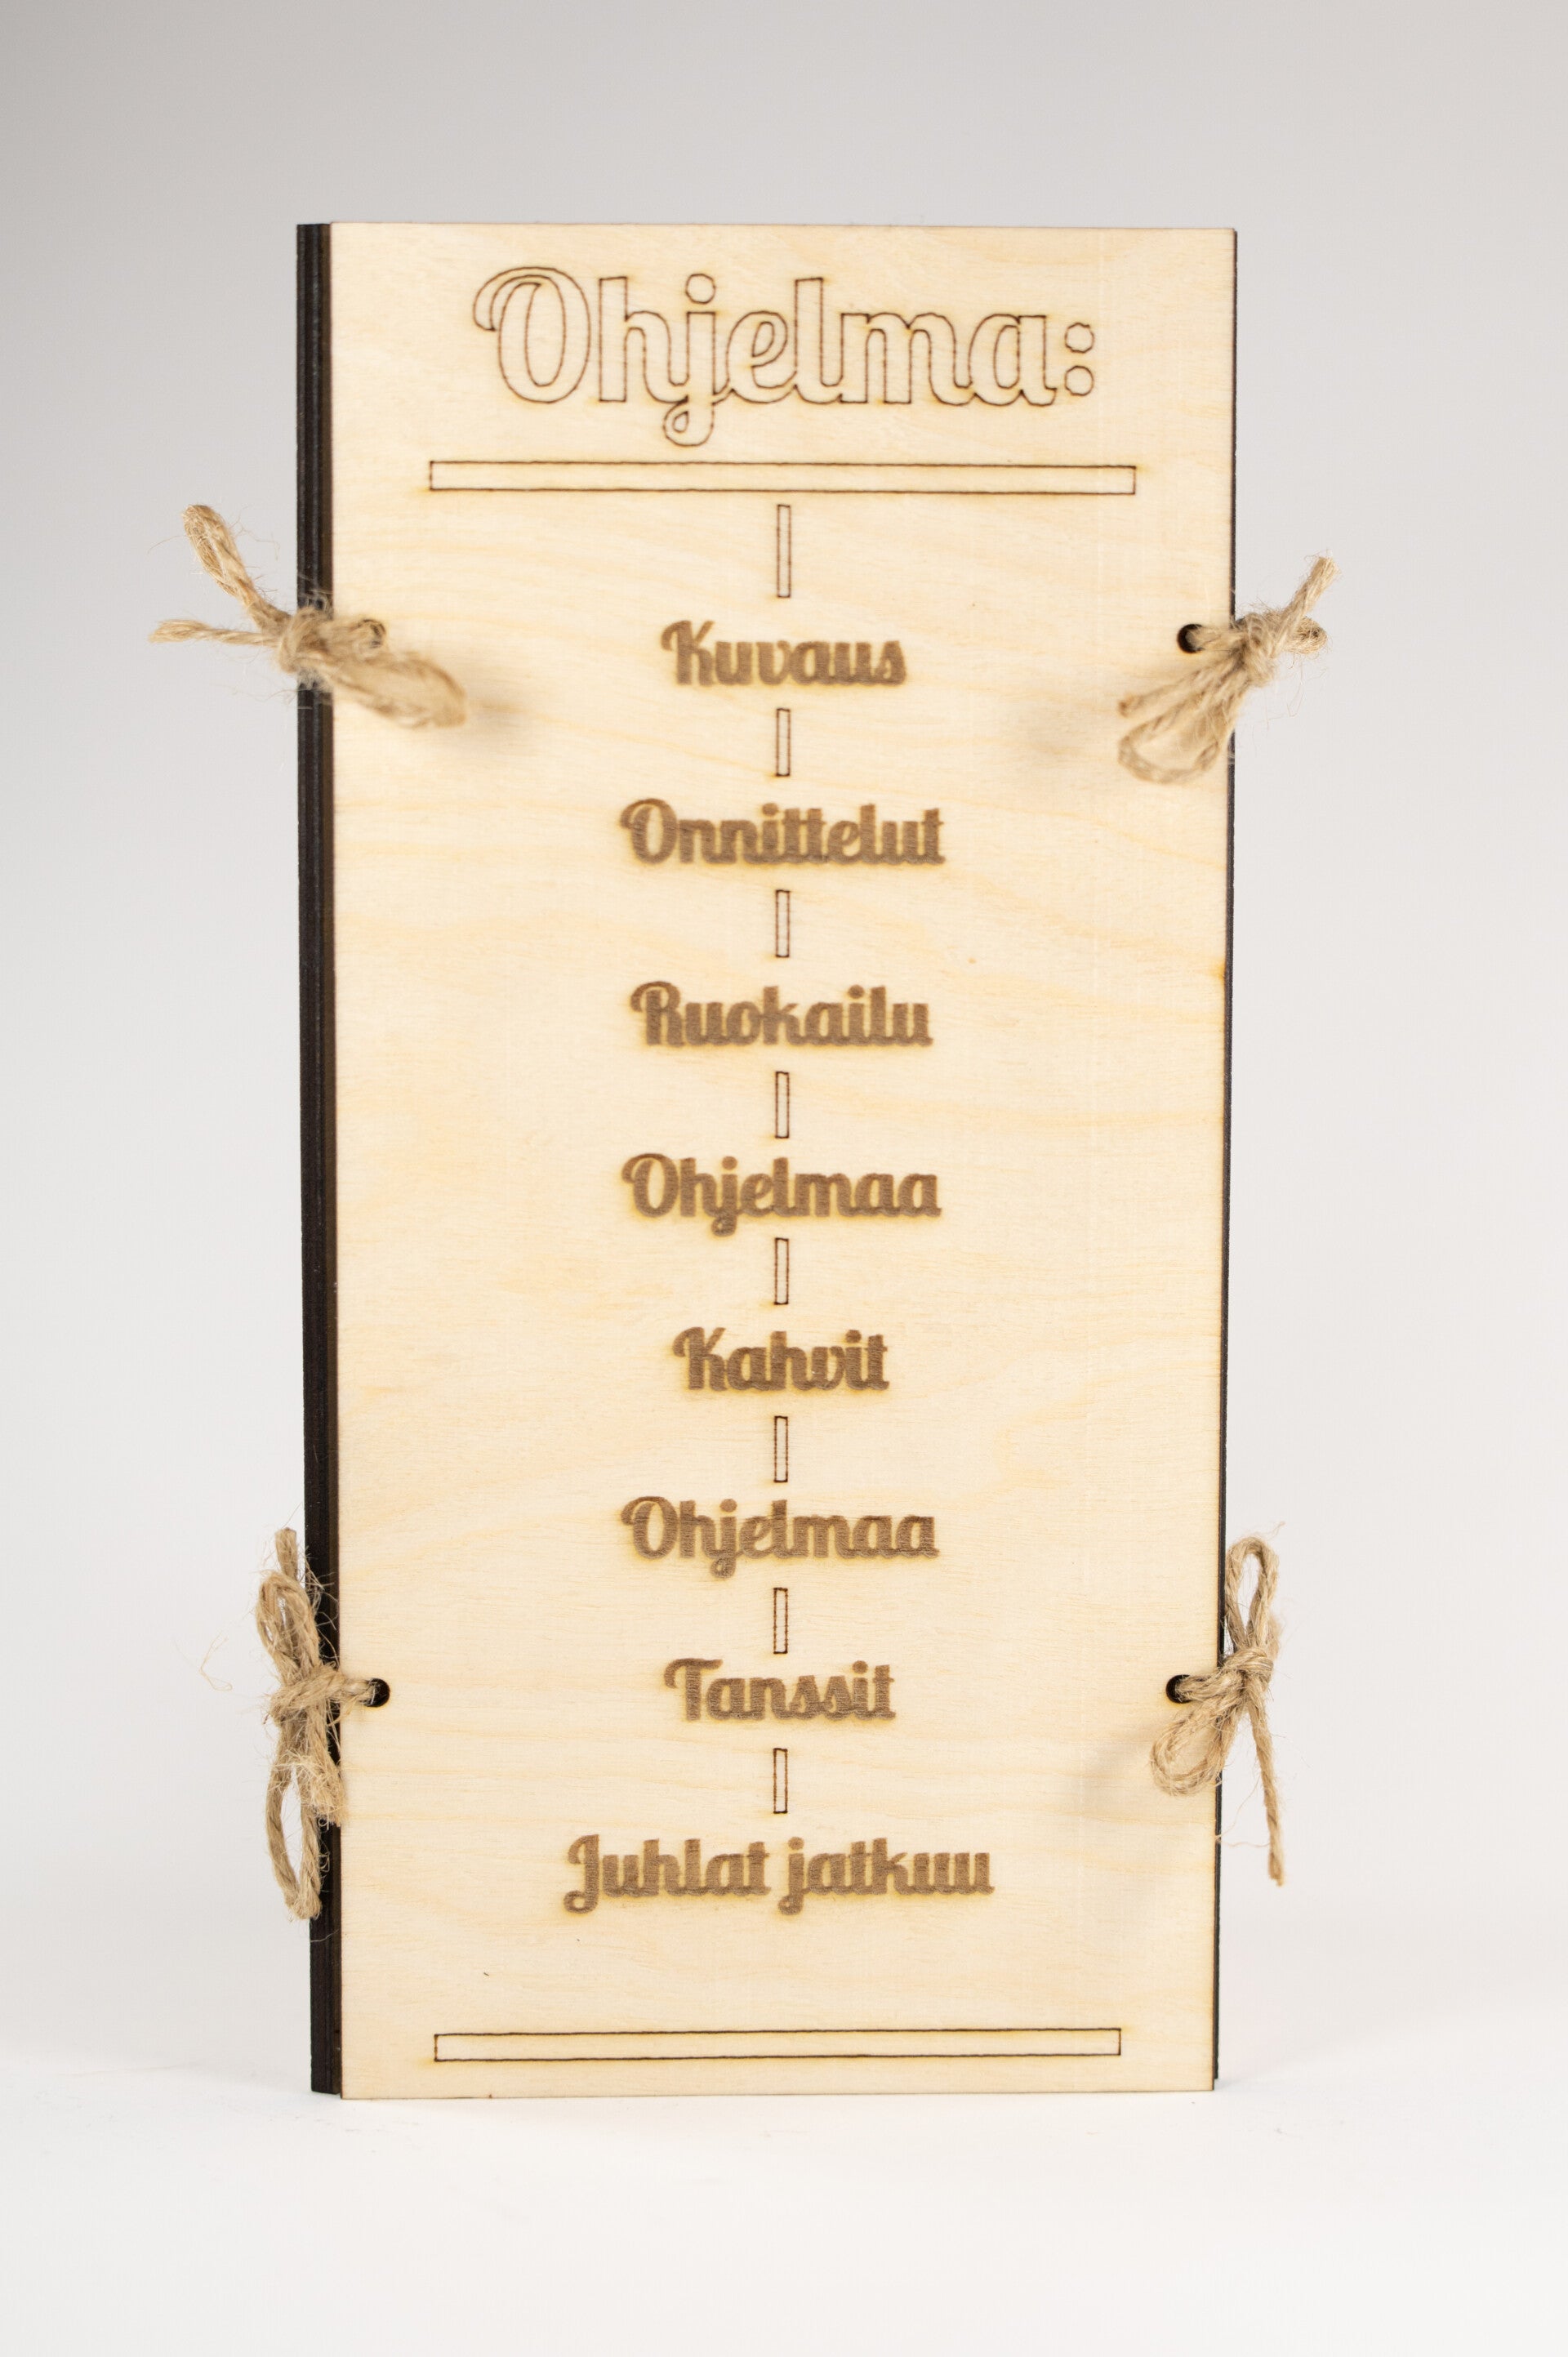 Ohjelma:
Kuvaus
Onnittelut
Ruokailu
Ohjelmaa
Kahvit
Ohjelmaa
Tanssit
Juhlat jatkuu